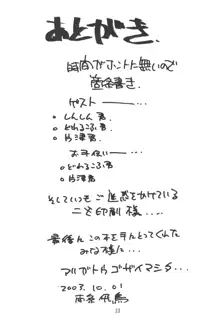 あとがき.
時間がホントに無いので
箇条書き
ゲスト ー ・・・
○しんしん君.
○どれるこふ君
○片津君.
お手伝い ー ・・・
○どれるこふ君
○片津君
そしていつもご迷惑をかけている
二葉印刷 様 ・・・
最後にこの本を手にとってくれた
みな様に ・・・
アリガトウゴザイマシタ ・・・
2003. 10. 01
33